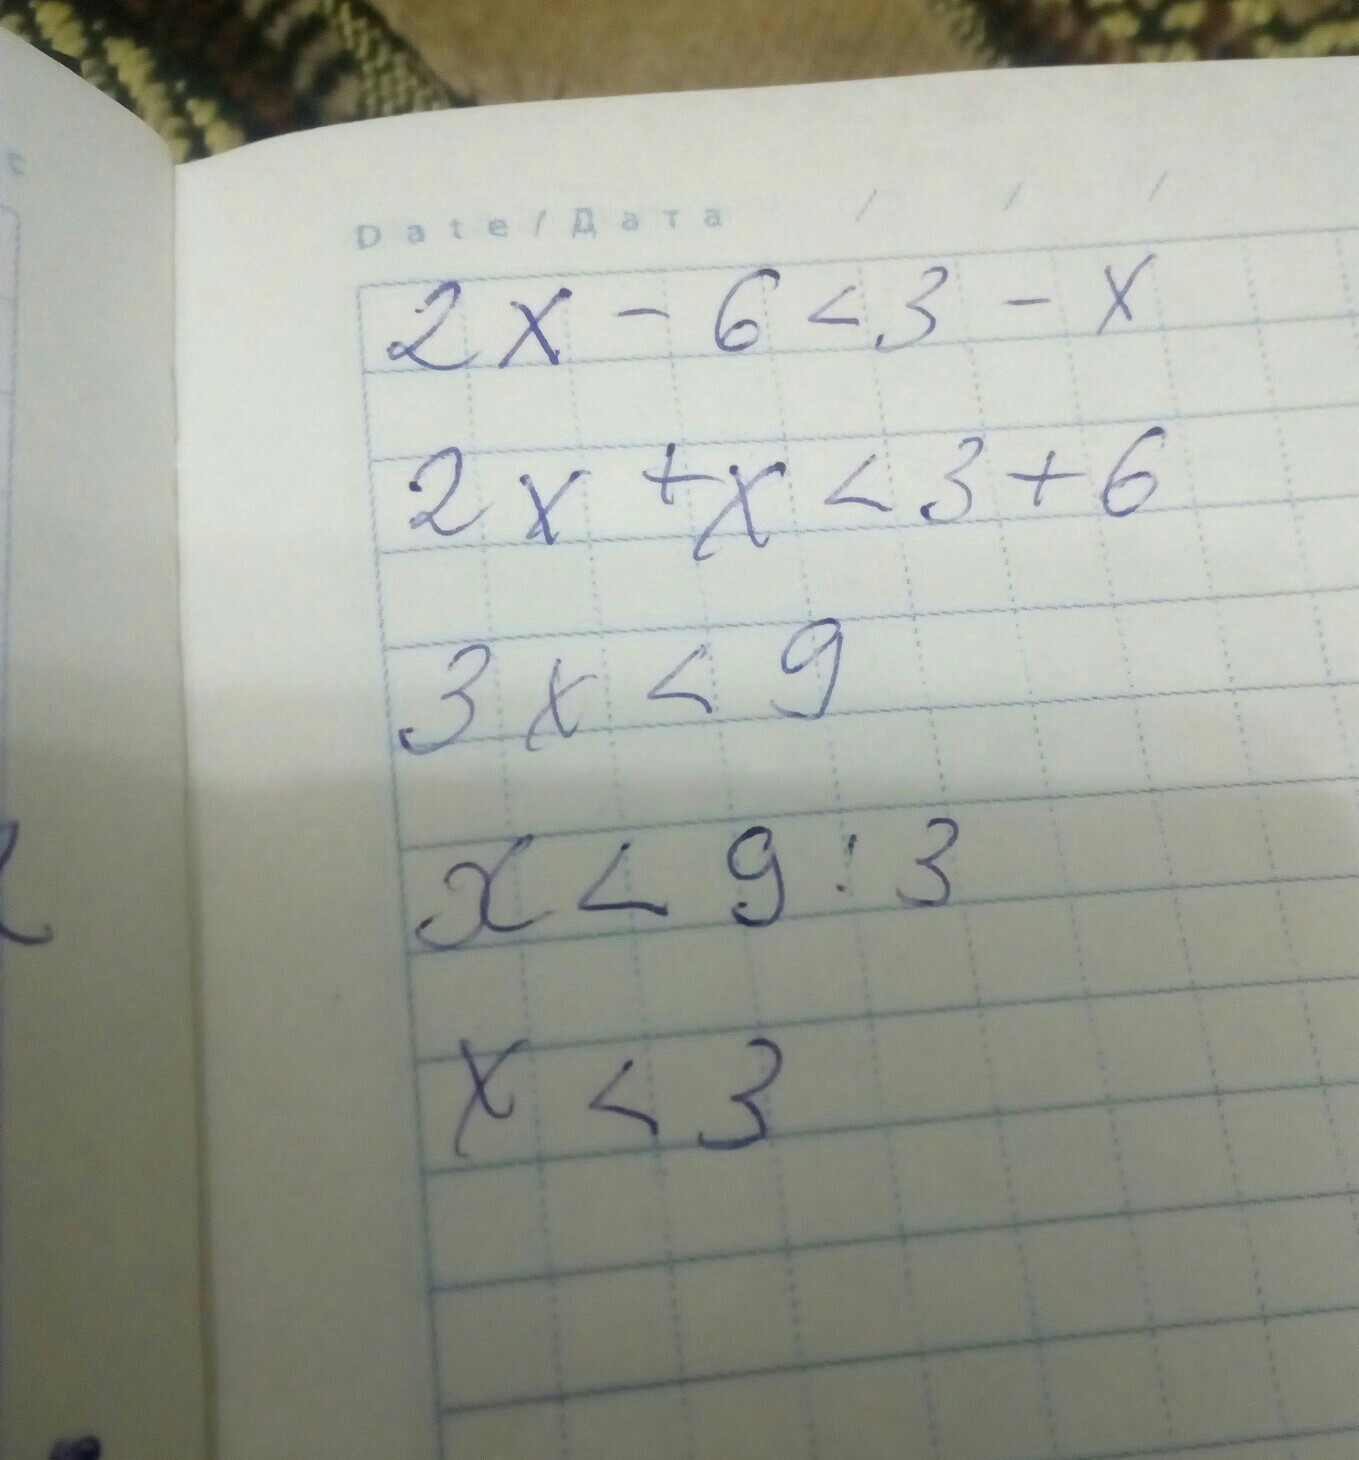 Date/Дата / / /
2x - 6 < 3 - x
2x + x < 3 + 6
3x < 9
x < 9 : 3
x < 3